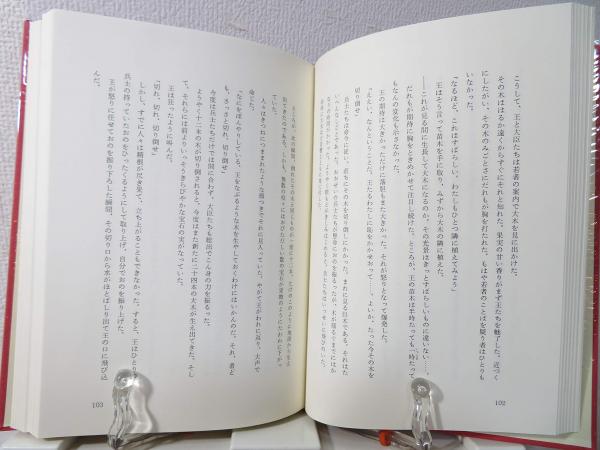 こうして、王と大臣たちは若者の案内で大木を見に出かけた。
その木ははるか遠くからすぐにそれと知れた。果実の甘い香りがまず王たちを魅了した。近づく
にしたがい、その木のみごとさにだれもが胸を打たれた。もはや若者のことばを疑う者はひとりも
いなかった。
「なるほど、これはすばらしい。わたしもひとつ隣に植えてみよう」
王はそう言って苗木を手に取り、みずから大木の隣に植えた。
――これが見る間に生長して大木になるのか、その光景はきっとすばらしいものに違いない……。
だれもが期待に胸をときめかせて注目し続けた。ところが、王の苗木は半時たっても一時たって
もなんの変化も示さなかった。
王の期待は大きかっただけに落胆もまた大きかった。それが怒りとなって爆発した。
「ええい、なんということだ。王たるわしに恥をかかせおって……。よいか、たった今その木を
切り倒せ」
兵士たちは命令に従い、直ちにその木を切り倒しにかかった。まれに見る巨木である。それはた
いへんな
ところが、次の瞬間、倒れたその木と同じものが一度に十二本、
出てきたのである。しかも、無数の枝々には
ていた。
人々はきつねにつままれたような顔つきでそれに見入っていた。やがて王がわれに返り、大声で
命じた。
「なにをぼんやりしている。王をなぶるような木を生やしておくわけにはいかんのだ。それ、者ど
も、さっさと切れ、切り倒せ」
今度は兵士たちだけでは間に合わず、大臣たちも総出でこん身の力を振るった。
ようやく十二本の木が切り倒されると、今度はまた新たに二十四本の大木が生え出てきた。そし
て、それらには前よりいっそうきらびやかな宝石の実がなっていた。
王は狂ったように叫んだ。
「切れ、切れ、切り倒せ」
しかし、すでに人々は精根が尽き果て、立ち上がることもできなかった。すると、王はひとりの
兵士の持っていたおのをひったくるようにして取り上げ、自分でおのを振り上げた。
王が怒りに任せておのを振り下ろした瞬間、その切り口から水がほとばしり出て王の口に飛び込
んだ。
102
103